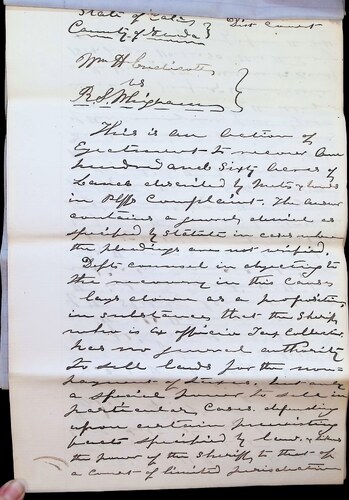 State of Cala } Dist Court
County of
Wm H Endicott
vs
R. S.
This is an Action of
Ejectment to recover One
hundred and Sixty Acres of
Land described by metes & bounds
in Plffs Complaint. The answer
contains a general denial as
specified by Statute in cases when
the pleadings are not verified.
Defts counsel in objecting to
the recovery in this Cause
lays down as a proposition
in substance that the Sheriff
who is Ex officio Tax Collector
has no general authority
to sell lands for the non-
payment of taxes, but only
a special power to sell in
particular cases depending
upon certain
facts specified by law, &
the power of the Sheriff to that of
a Court of limited jurisdiction